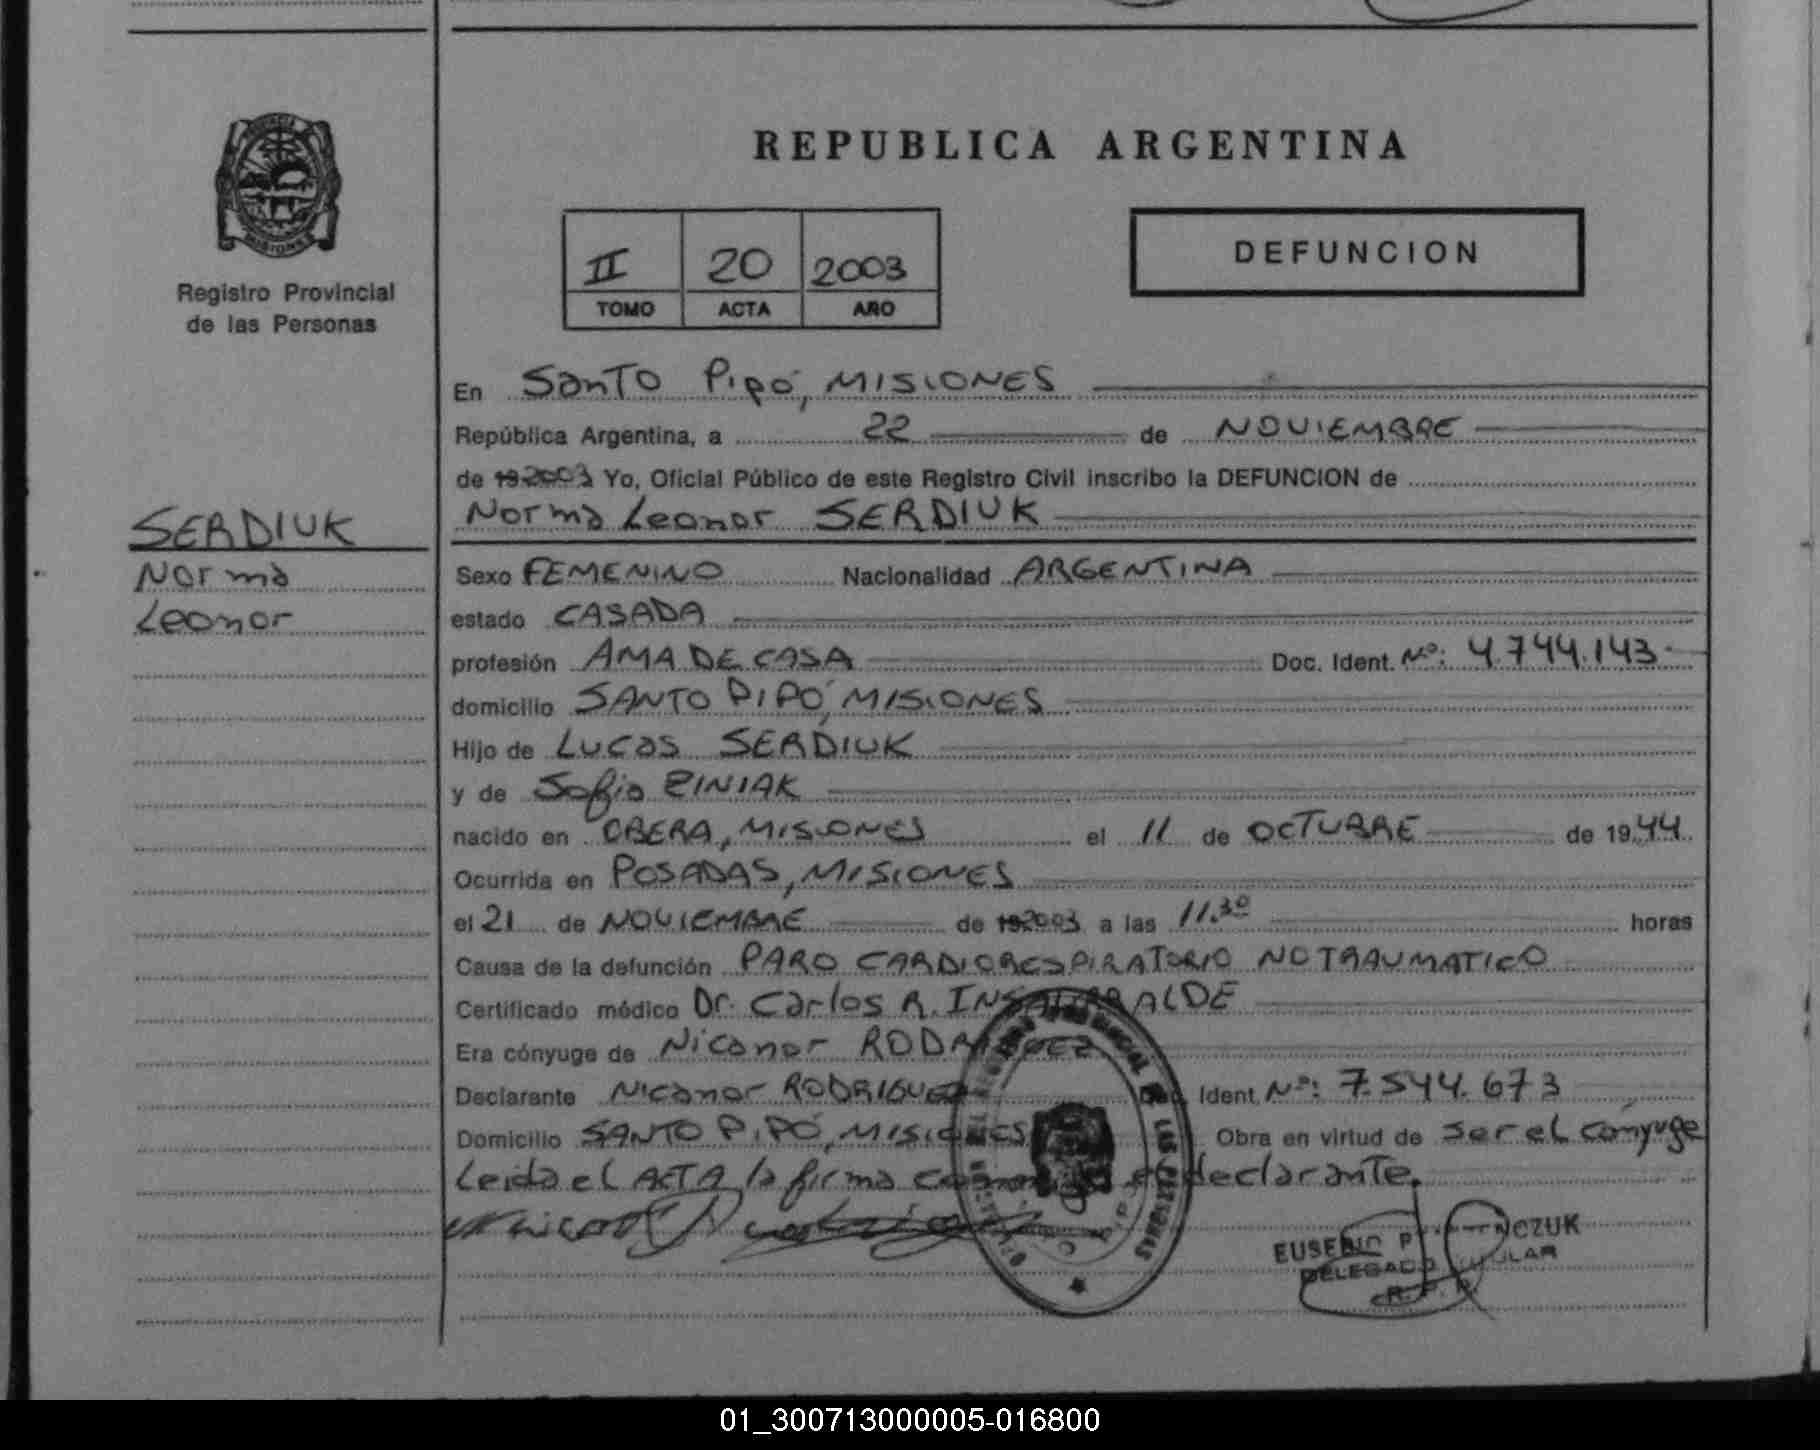 REPUBLICA ARGENTINA
Registro Provincial
de las Personas
II 20 2003
TOMO ACTA AÑO
DEFUNCION
SERDIUK
Norma
Leonor
En Santo Pipó, MISIONES
República Argentina, a 22 de NOVIEMBRE
de 19 2003 Yo, Oficial Público de este Registro Civil inscribo la DEFUNCION de
Norma Leonor SERDIUK
Sexo FEMENINO Nacionalidad ARGENTINA
estado CASADA
profesión AMA DE CASA Doc. Ident. Nº: 4.744.143
domicilio SANTO PIPÓ, MISIONES
Hijo de Lucas SERDIUK
y de Sofia ZINIAK
nacido en OBERA, MISIONES el 11 de OCTUBRE de 1944
Ocurrida en POSADAS, MISIONES
el 21 de NOVIEMBRE de 19 2003 a las 11.30 horas
Causa de la defunción PARO CARDIORESPIRATORIO NO TRAUMATICO
Certificado médico Dr. Carlos R. INSAURRALDE
Era cónyuge de Nicanor RODRIGUEZ
Declarante Nicanor RODRIGUEZ Doc. Ident. Nº: 7.544.673
Domicilio SANTO PIPÓ, MISIONES Obra en virtud de ser el cónyuge
Leida el ACTA la firma conmigo el declarante.
EUSEBIO
DELEGADO TITULAR
R.P.P.
01_300713000005-016800